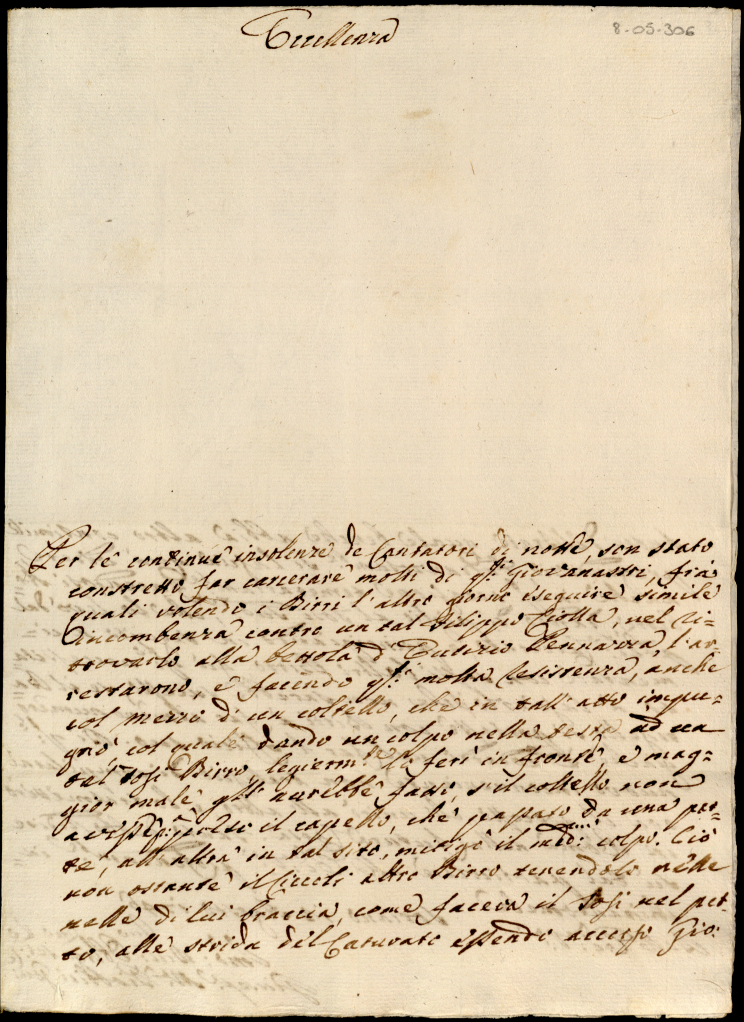 Eccellenza
8-05-306
Per le continue insolenze de Cantatori di notte, son stato
constretto far carcerare molti di qti Giovanastri, frà
quali volendo i Birri l'altro giorno eseguire simile
incombenza contro un tal Filippo Ciolla, nel ri=
trovarlo alla bettola d' Pennazza, l'ar=
restarono, e facendo qti molta resistenza, anche
col mezzo di un coltello, che in tall' atto impu=
gnò, col quale dando un colpo nella testa ad un
tal Tosi Birro, legierm.te lo ferì in fronte, e mag=
gior male gl' averebbe fatto, s'il coltello non
avesse il capello, che passato da una par=
te, all' altra in tal sito, mitigò il colpo. Ciò
non ostante il Ciccoli altro Birro tenendolo nelle
nelle di lui braccia, come faceva il Tosi nel pet=
to, alle strida del Caturato essendo accorsi Gio: